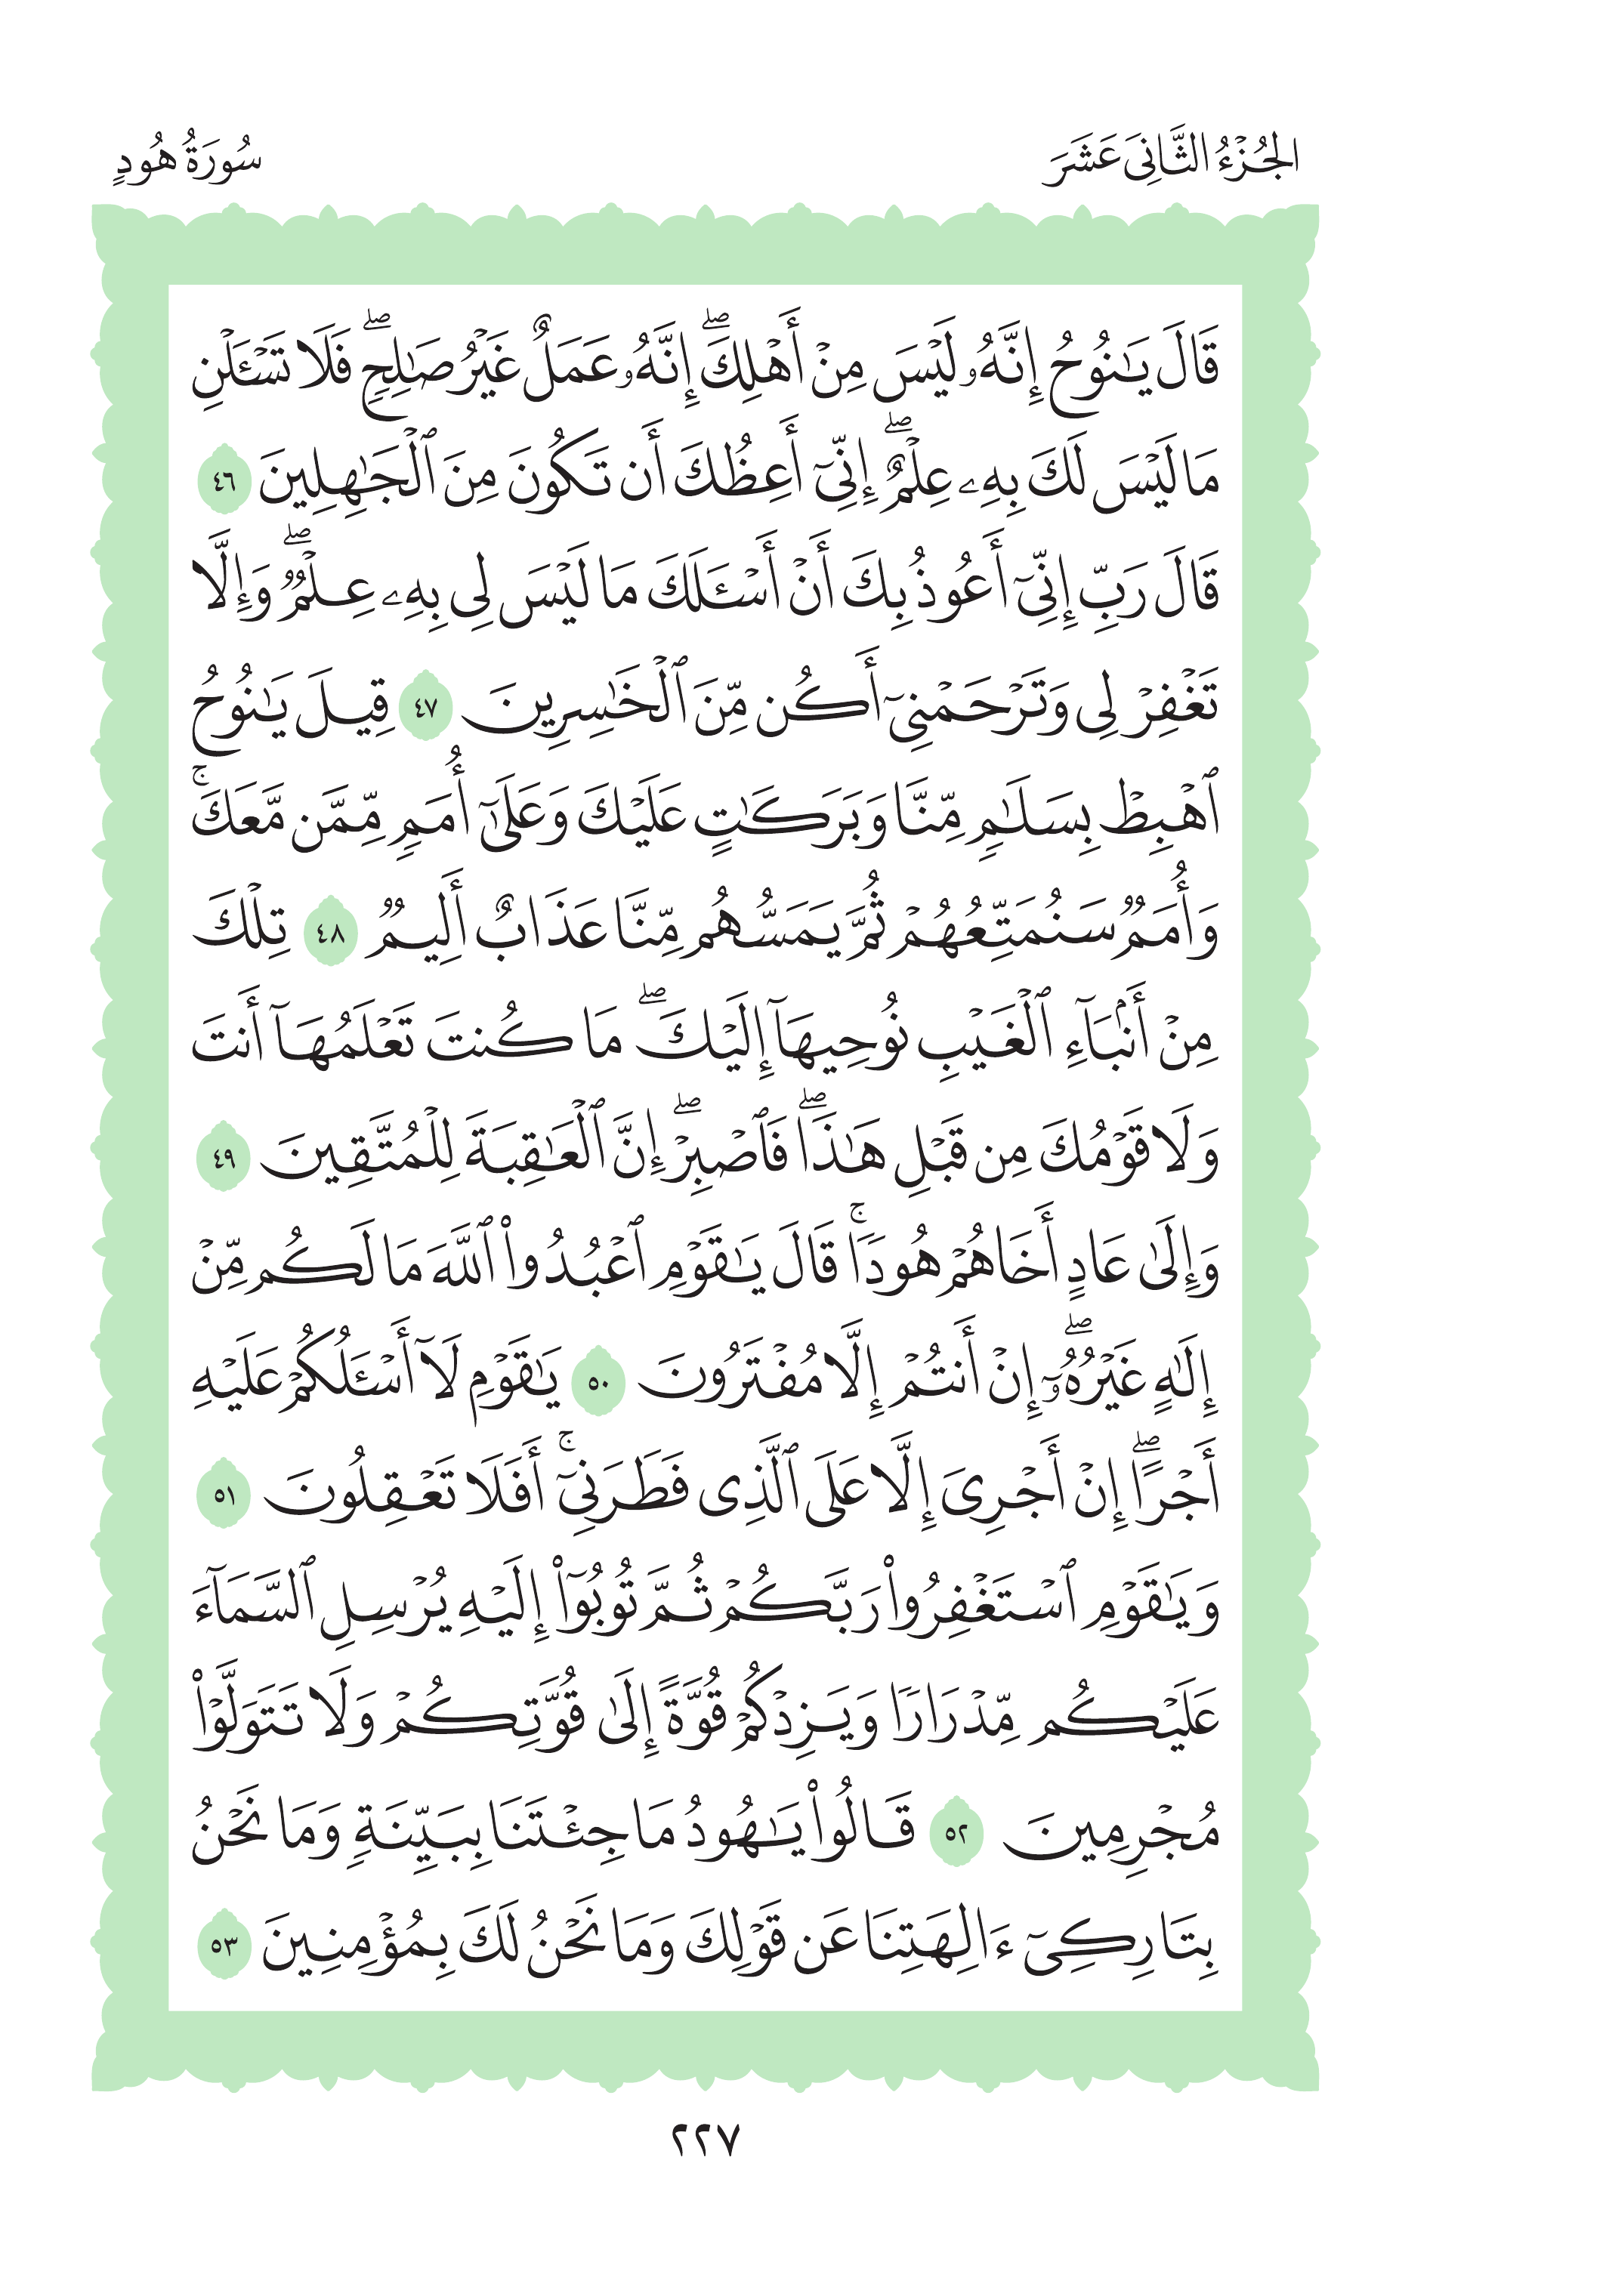 الجُزْءُ الثَّانِىَ عَشَرَ
سُورَةُ هُودٍ
قَالَ يَٰنُوحُ إِنَّهُۥ لَيۡسَ مِنۡ أَهۡلِكَۖ إِنَّهُۥ عَمَلٌ غَيۡرُ صَٰلِحٖۖ فَلَا تَسۡـَٔلۡنِ
مَا لَيۡسَ لَكَ بِهِۦ عِلۡمٌۖ إِنِّيٓ أَعِظُكَ أَن تَكُونَ مِنَ ٱلۡجَٰهِلِينَ ٤٦
قَالَ رَبِّ إِنِّيٓ أَعُوذُ بِكَ أَنۡ أَسۡـَٔلَكَ مَا لَيۡسَ لِي بِهِۦ عِلۡمٞۖ وَإِلَّا
تَغۡفِرۡ لِي وَتَرۡحَمۡنِيٓ أَكُن مِّنَ ٱلۡخَٰسِرِينَ ٤٧ قِيلَ يَٰنُوحُ
ٱهۡبِطۡ بِسَلَٰمٖ مِّنَّا وَبَرَكَٰتٍ عَلَيۡكَ وَعَلَىٰٓ أُمَمٖ مِّمَّن مَّعَكَۚ
وَأُمَمٞ سَنُمَتِّعُهُمۡ ثُمَّ يَمَسُّهُم مِّنَّا عَذَابٌ أَلِيمٞ ٤٨ تِلۡكَ
مِنۡ أَنۢبَآءِ ٱلۡغَيۡبِ نُوحِيهَآ إِلَيۡكَۖ مَا كُنتَ تَعۡلَمُهَآ أَنتَ
وَلَا قَوۡمُكَ مِن قَبۡلِ هَٰذَاۖ فَٱصۡبِرۡۖ إِنَّ ٱلۡعَٰقِبَةَ لِلۡمُتَّقِينَ ٤٩
وَإِلَىٰ عَادٍ أَخَاهُمۡ هُودٗاۚ قَالَ يَٰقَوۡمِ ٱعۡبُدُواْ ٱللَّهَ مَا لَكُم مِّنۡ
إِلَٰهٍ غَيۡرُهُۥٓۖ إِنۡ أَنتُمۡ إِلَّا مُفۡتَرُونَ ٥٠ يَٰقَوۡمِ لَآ أَسۡـَٔلُكُمۡ عَلَيۡهِ
أَجۡرًاۖ إِنۡ أَجۡرِيَ إِلَّا عَلَى ٱلَّذِي فَطَرَنِيٓۚ أَفَلَا تَعۡقِلُونَ ٥١
وَيَٰقَوۡمِ ٱسۡتَغۡفِرُواْ رَبَّكُمۡ ثُمَّ تُوبُوٓاْ إِلَيۡهِ يُرۡسِلِ ٱلسَّمَآءَ
عَلَيۡكُم مِّدۡرَارٗا وَيَزِدۡكُمۡ قُوَّةً إِلَىٰ قُوَّتِكُمۡ وَلَا تَتَوَلَّوۡاْ
مُجۡرِمِينَ ٥٢ قَالُواْ يَٰهُودُ مَا جِئۡتَنَا بِبَيِّنَةٖ وَمَا نَحۡنُ
بِتَارِكِيٓ ءَالِهَتِنَا عَن قَوۡلِكَ وَمَا نَحۡنُ لَكَ بِمُؤۡمِنِينَ ٥٣
٢٢٧